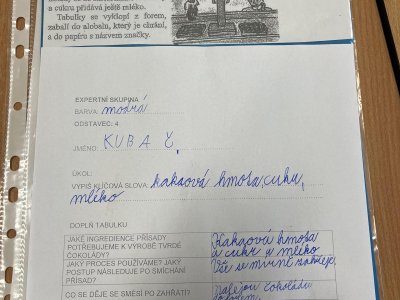 a cukru přidává ještě mléko.
Tabulky se vyklopí z forem,
zabalí do alobalu, který je chrání,
a do papíru s názvem značky.
EXPERTNÍ SKUPINA
BARVA: modrá
ODSTAVEC: 4
JMÉNO: KUBA Č.
ÚKOL:
VYPIŠ KLÍČOVÁ SLOVA: kakaová hmota, cukr,
mléko
DOPLŇ TABULKU
JAKÉ INGREDIENCE PŘÍSADY
POTŘEBUJEME K VÝROBĚ TVRDÉ
ČOKOLÁDY?
JAKÝ PROCES POUŽÍVÁME? JAKÝ
POSTUP NÁSLEDUJE PO SMÍCHÁNÍ
PŘÍSAD?
Kakaová hmota
a cukr a mléko
Vše se mírně zahřeje
CO SE DĚJE SE SMĚSÍ PO ZAHŘÁTÍ?
čokoládu